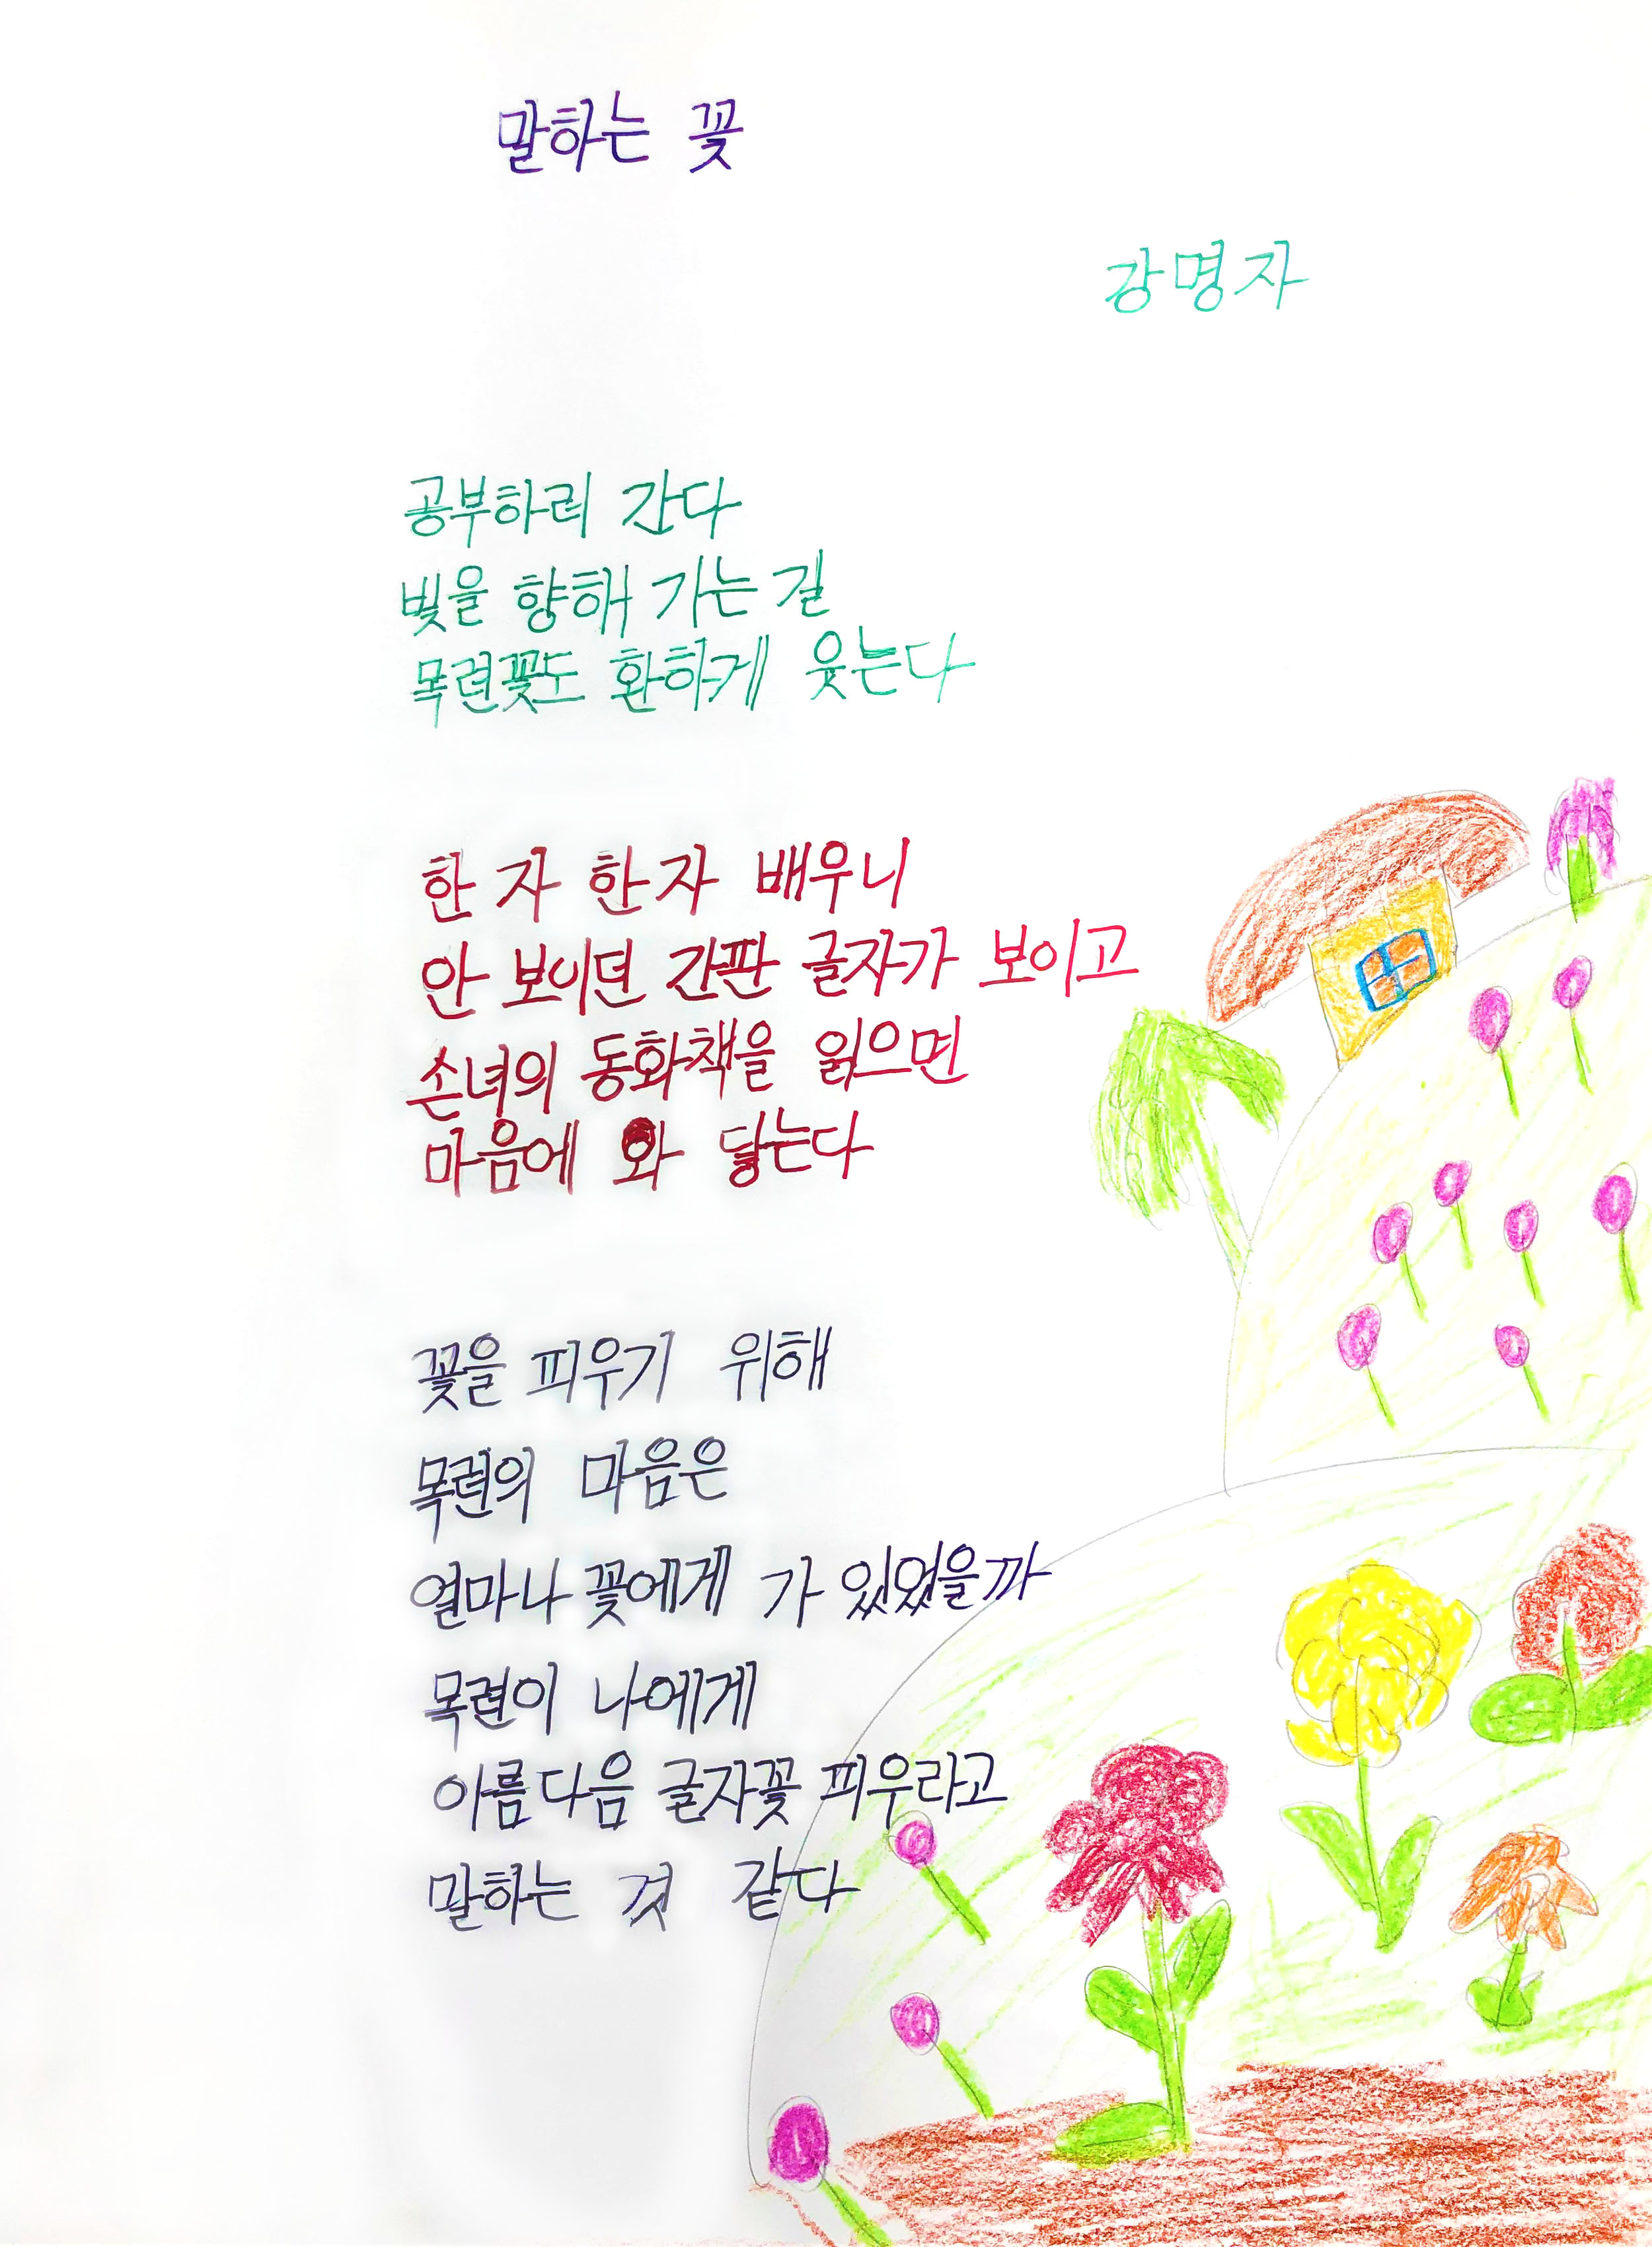 말하는 꽃
강명자
공부하러 간다
빛을 향해 가는 길
목련꽃도 환하게 웃는다
한 자 한 자 배우니
안 보이던 간판 글자가 보이고
손녀의 동화책을 읽으면
마음에 와 닿는다
꽃을 피우기 위해
목련의 마음은
얼마나 꽃에게 가 있었을까
목련이 나에게
아름다음 글자꽃 피우라고
말하는 것 같다